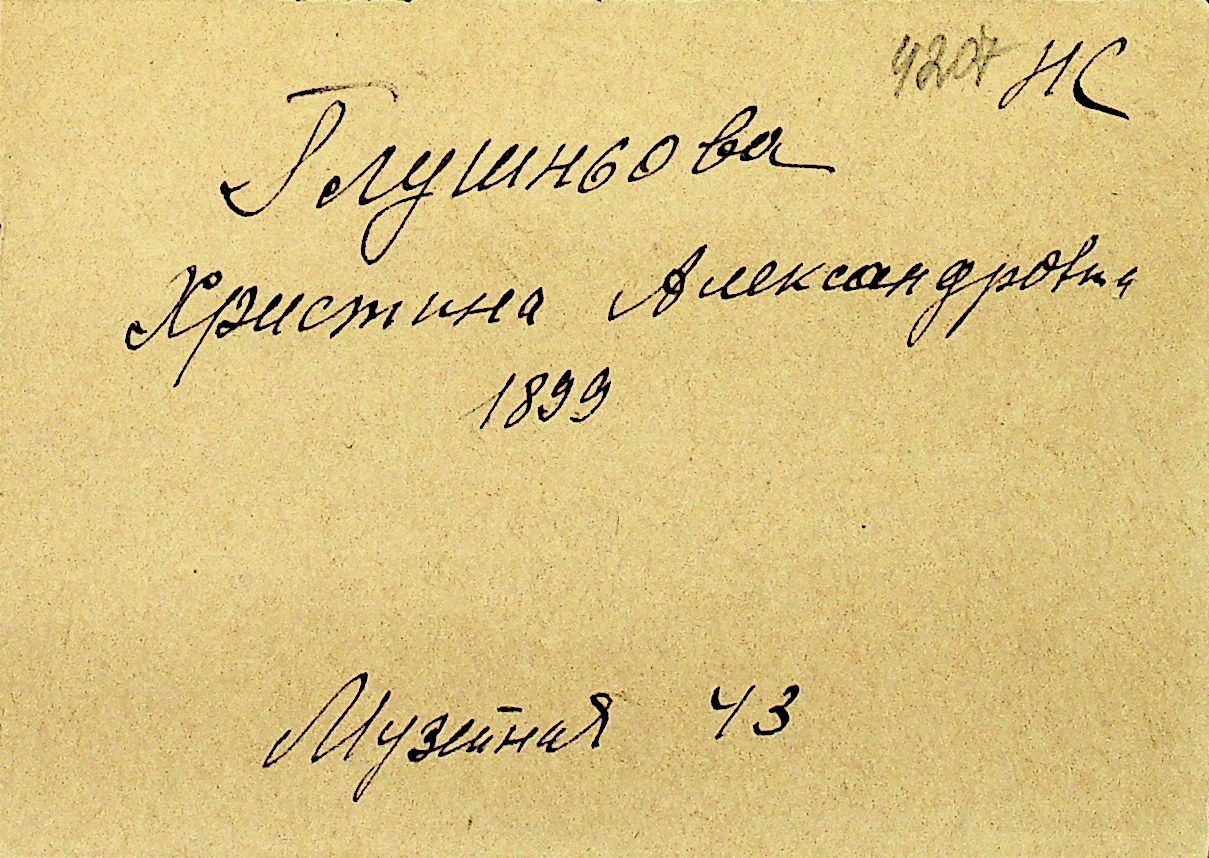 4207 НС
Глушньова
Христина Александровна
1899
Музейная 43